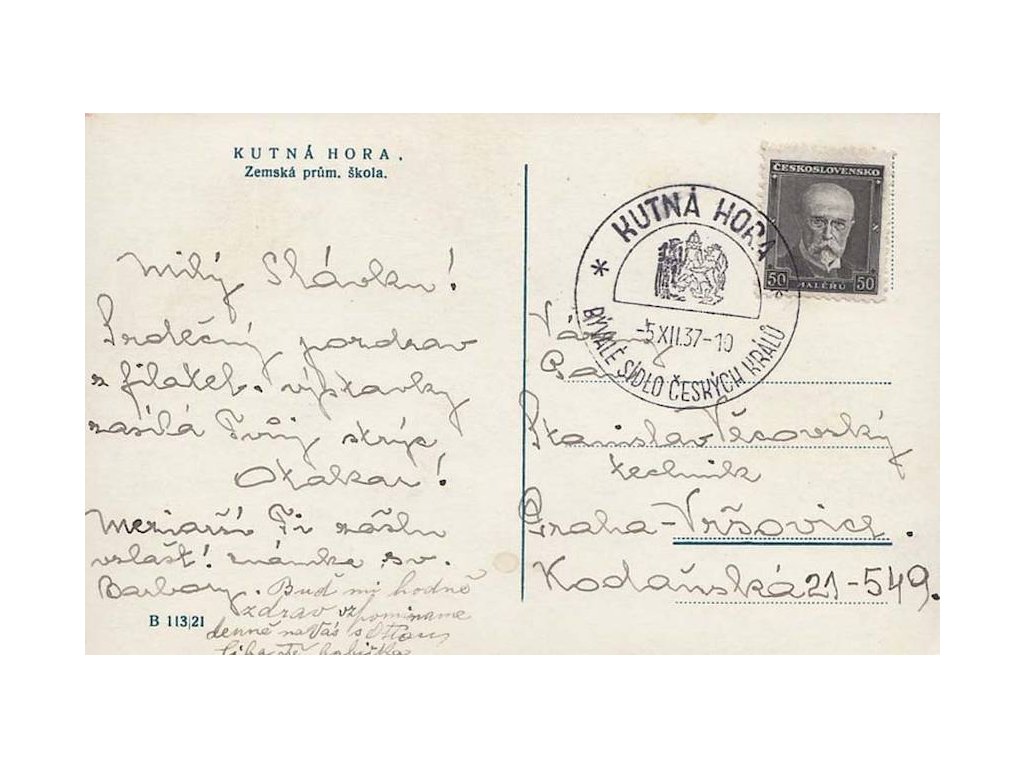 KUTNÁ HORA.
Zemská prům. škola.
Milý Slávku!
Srdečný pozdrav
z filatel. výstavky
zasílá Tvůj strýc
Otakar!
Ti zašlu
vzlášť! známka sv.
Barbory. Buď mi hodně
zdrav vzpomínáme
denně na Vás s Ottou,
líbá Tě babička
B 113|21
ČESKOSLOVENSKO
50 HALÉŘŮ 50
KUTNÁ HORA
-5.XII.37-10
BÝVALÉ SÍDLO ČESKÝCH KRÁLŮ
Vážený
Pan
Stanislav Věcovský
technik
Praha-Vršovice.
Kodaňská 21-549.